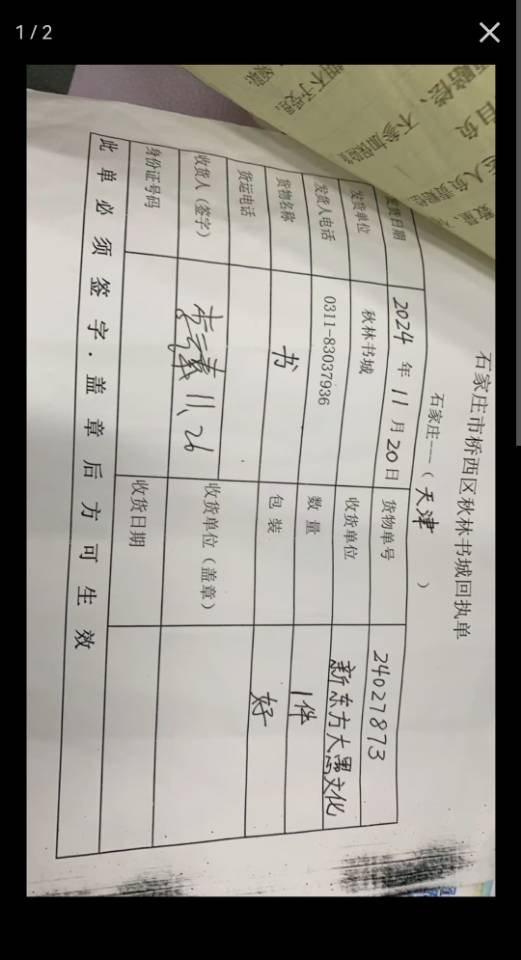 1 / 2
石家庄市桥西区秋林书城回执单
石家庄---（天津）
发货日期 2024年11月20日 货物单号 24027873
发货单位 秋林书城 收货单位 新东方大愚文化
发货人电话 0311-83037936 数量 1件
货物名称 书 包装 好
货运电话
收货人（签字） 11、26 收货单位（盖章）
身份证号码 收货日期
此单必须签字．盖章后方可生效
不参加保险
自负
赔偿、